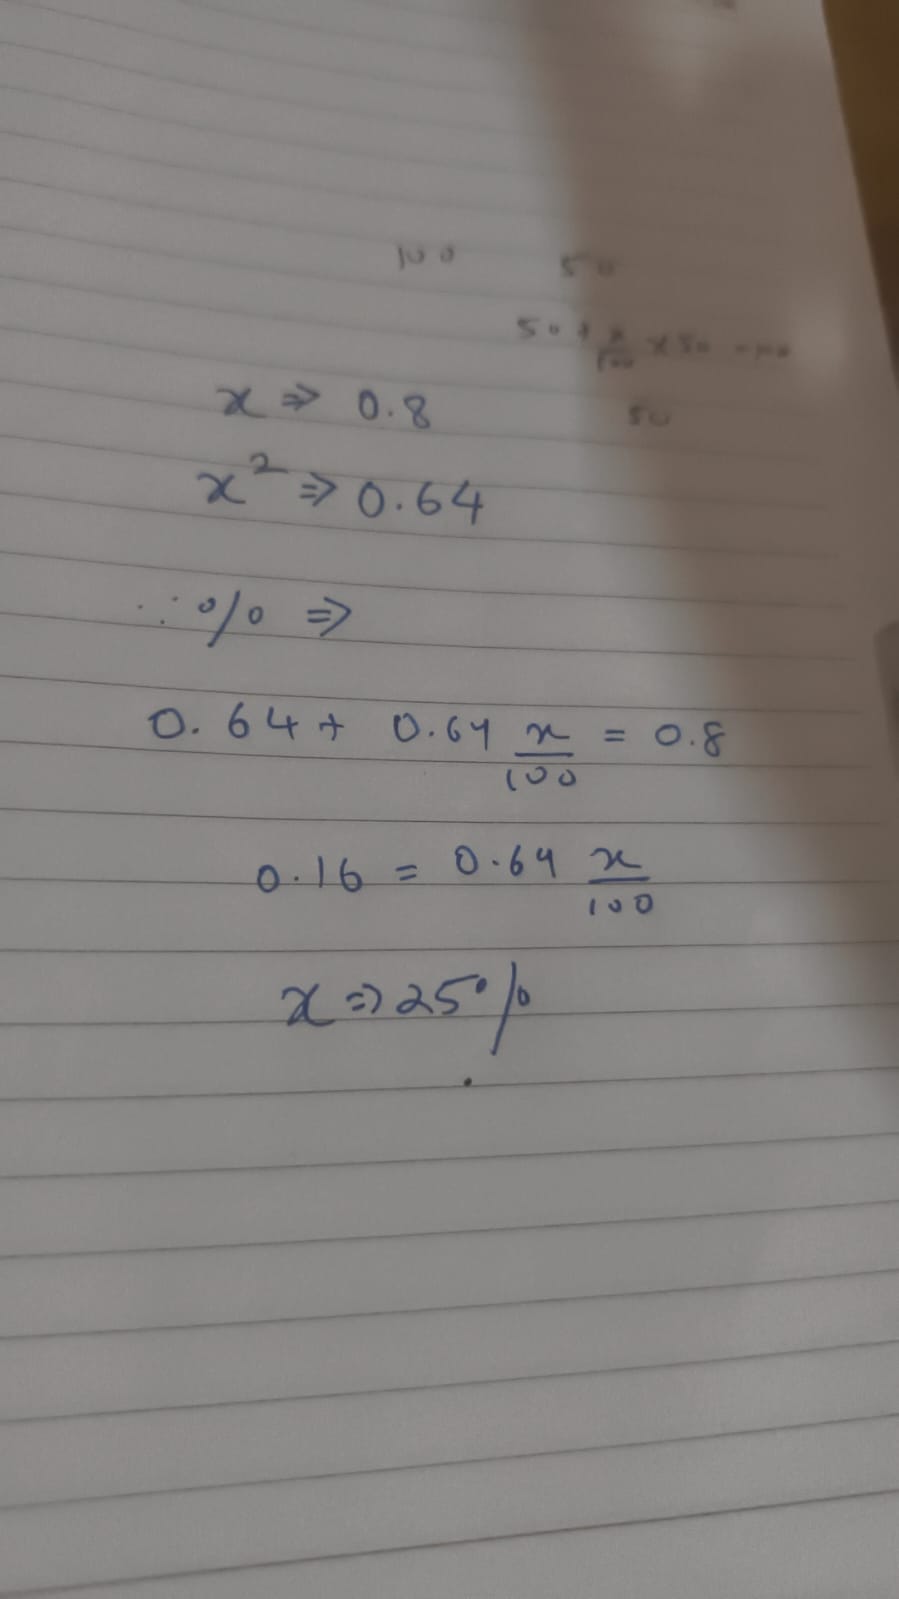 100 50
50 + x/100 × 50
50
x ⇒ 0.8
x² ⇒ 0.64
∴ % ⇒
0.64 + 0.64 x/100 = 0.8
0.16 = 0.64 x/100
x ⇒ 25%